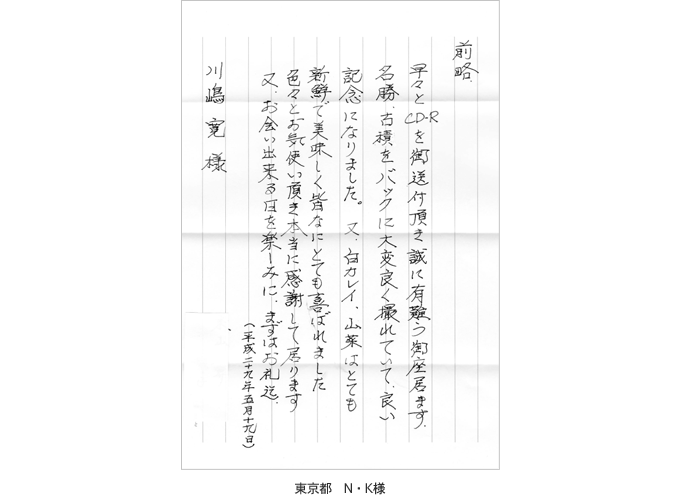 前略、
早々とCD-Rを御送付頂き誠に有難う御座居ます。
名勝、古積をバックに大変良く撮れていて、良い
記念になりました。又、白カレイ、山菜はとても
新鮮で美味しく皆なにとても喜ばれました
色々とお気使い頂き本当に感謝して居ります
又、お会い出来る日を楽しみに、まずはお礼迄、
(平成二十九年五月十九日)
川嶋寛様
東京都 N・K様